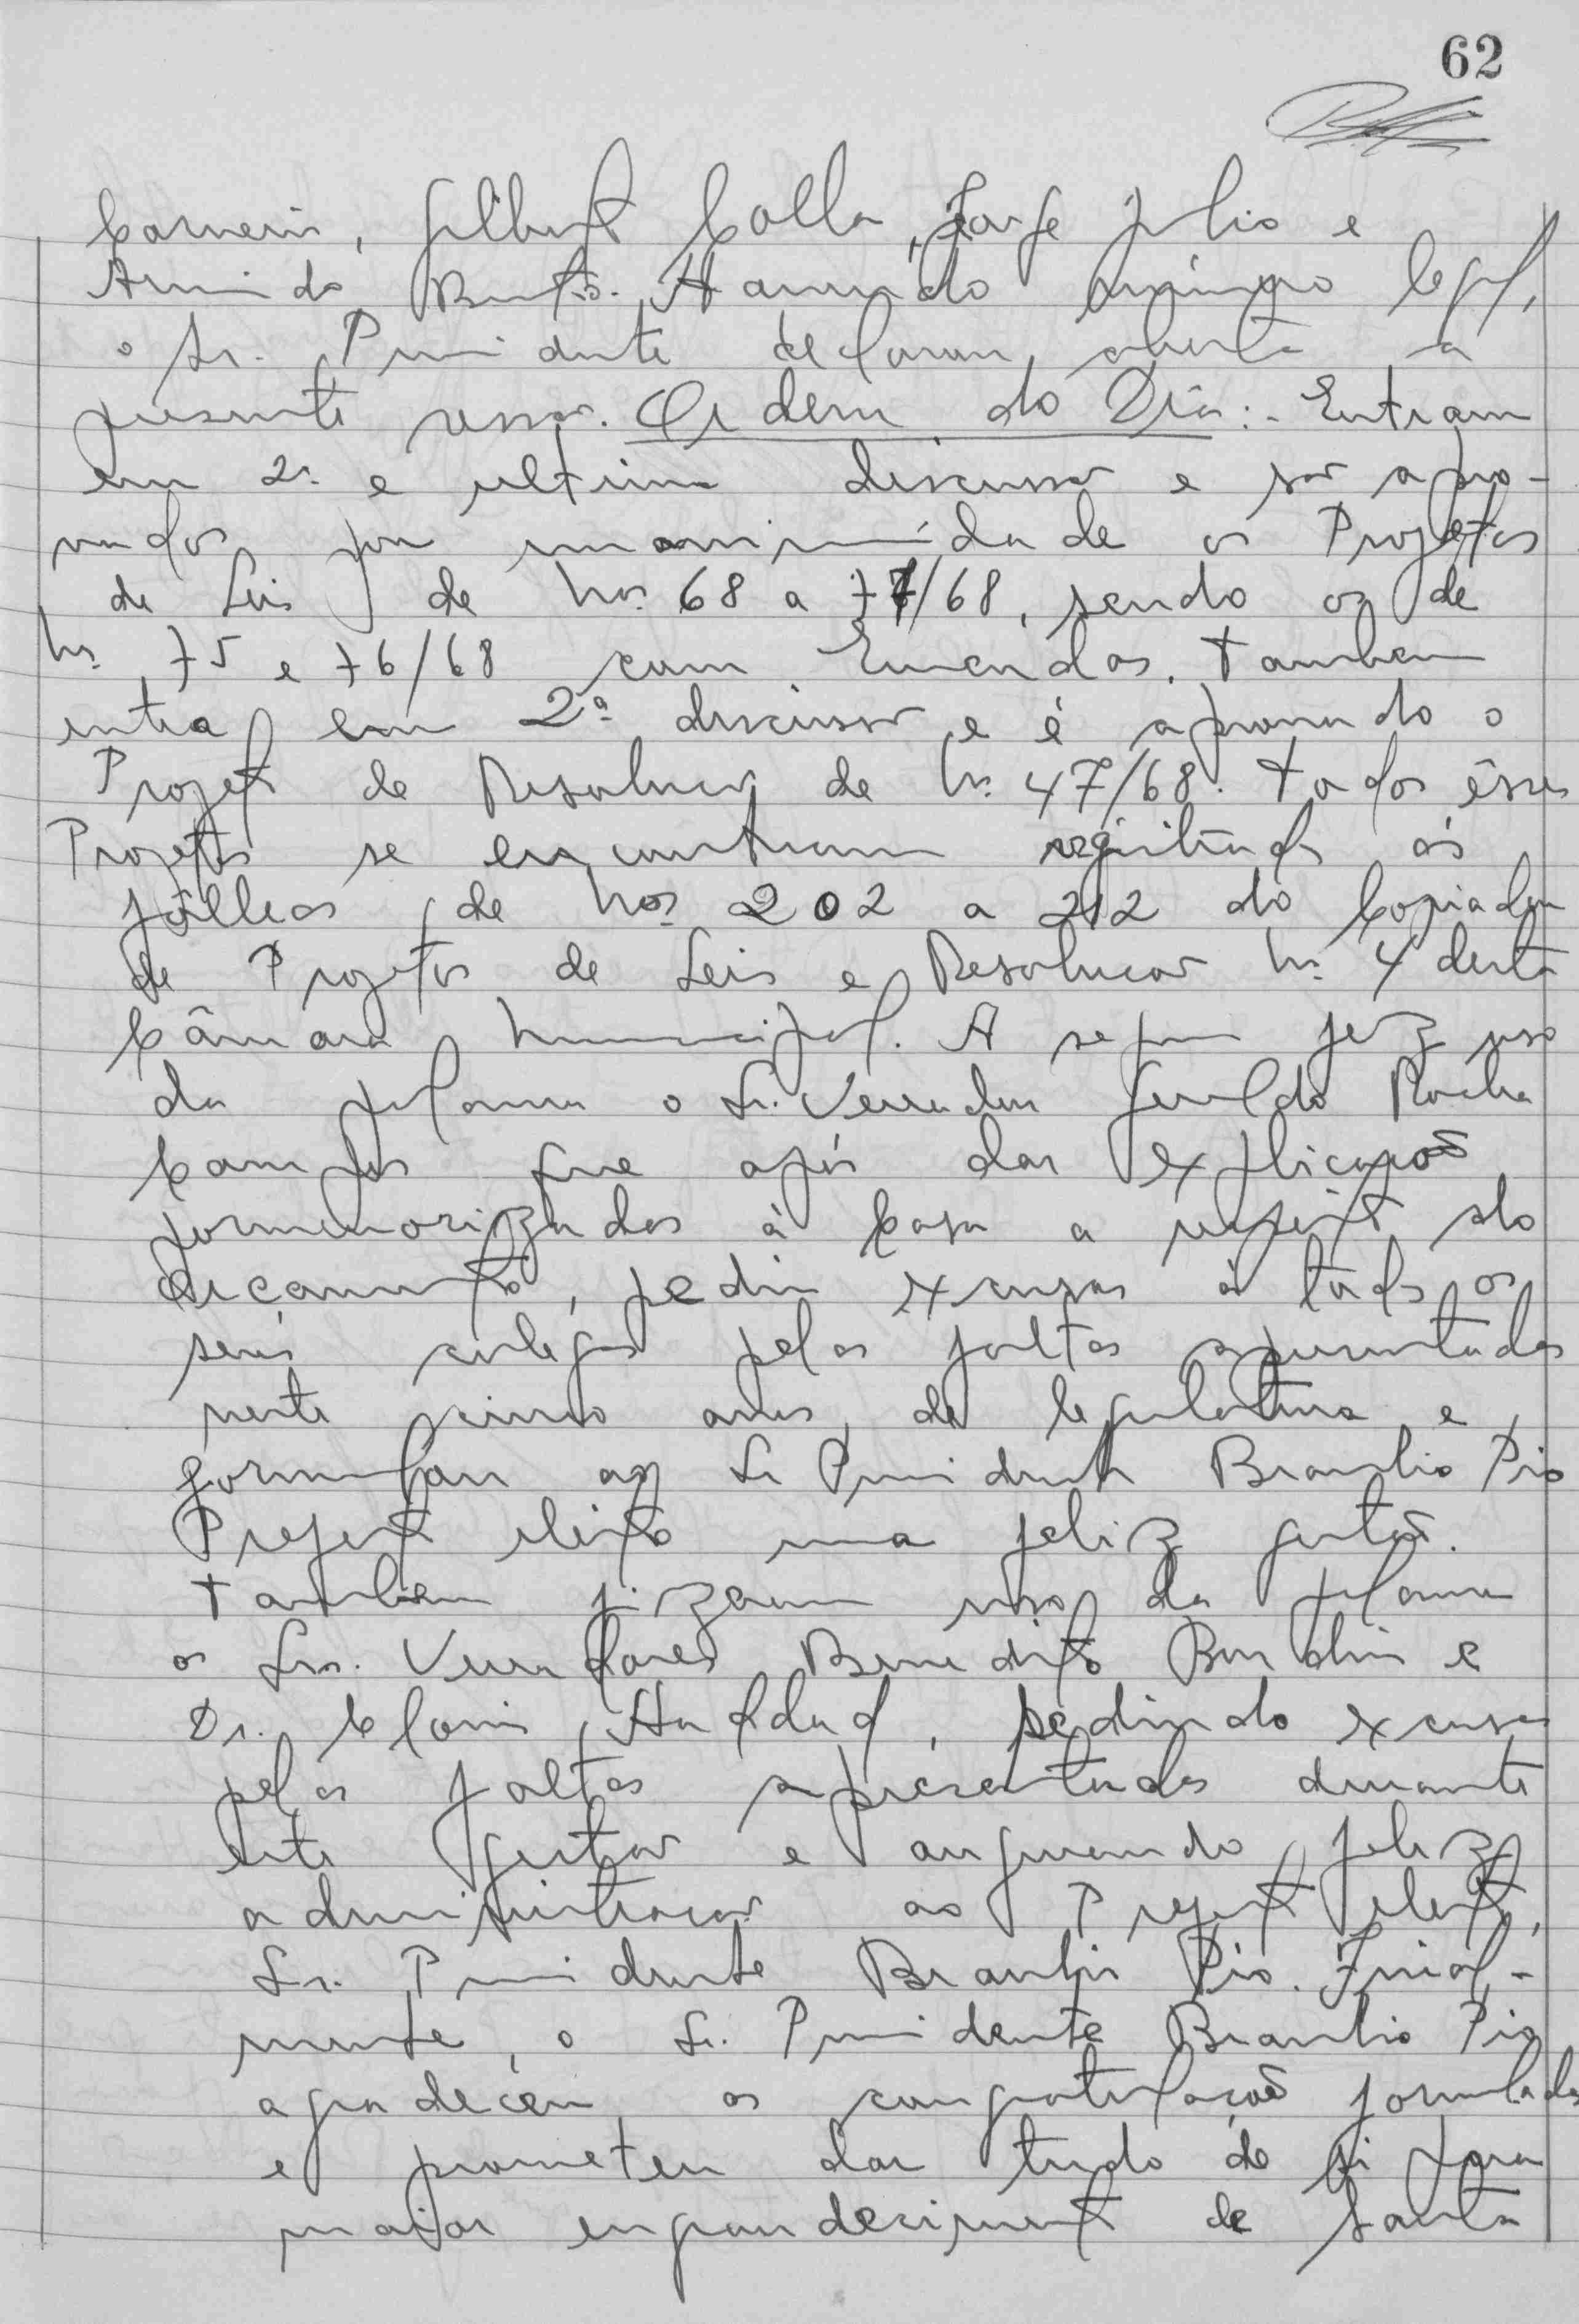 62
Carneiro, Gilberto Colla, Jorge Julio e
Armindo Bento. Havendo número legal,
o Sr. Presidente declarou aberta a
presente sessão. Ordem do Dia:- Entram
em 2ª e ultima discussão e são apro-
vados por unanimidade os Projetos
de Leis de nos. 68 a 77/68, sendo os de
nº 75 e 76/68 com Emendas. Tambem
entra em 2ª discussão e é aprovado o
Projeto de Resolução de nº 47/68. Todos êsses
Projetos se encontram registrados ás
fôlhas de nos 202 a 212 do Copiador
de Projetos de Leis e Resolucão nº 4 desta
Câmara Municipal. A seguir fez uso
da palavra o Sr. Vereador Geraldo Rocha
Campos que após dar explicações
pormenorizadas á Casa a respeito do
orçamento, pediu excusas á todos os
seus colegas pelas faltas apresentadas
neste cinco anos de legislatura e
formulou ao Sr Presidente Braulio Pio
Prefeito eleito uma feliz gestão.
Tambem fizeram uso da palavra
os Srs. Vereadores Benedito Bordim e
Dr. Clovis Haddad, pedindo excusas
pelas faltas apresentadas durante
esta gestão e augurando feliz
administracão ao Prefeito eleito,
Sr. Presidente Braulio Pio. Final-
mente, o Sr. Presidente Braulio Pio
agradeceu as congratulações formuladas
e prometeu dar tudo de si para
maior engrandecimento de Santa